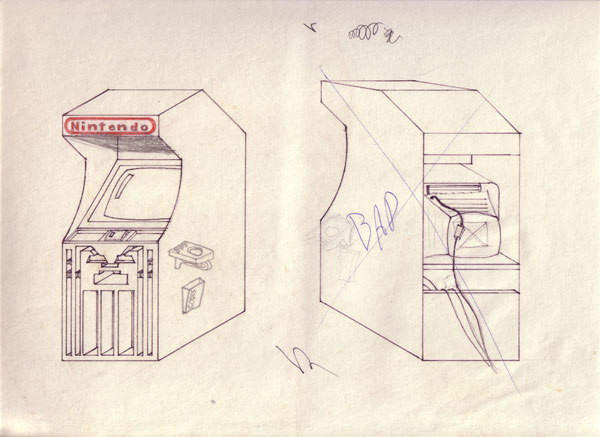 Nintendo
BAD